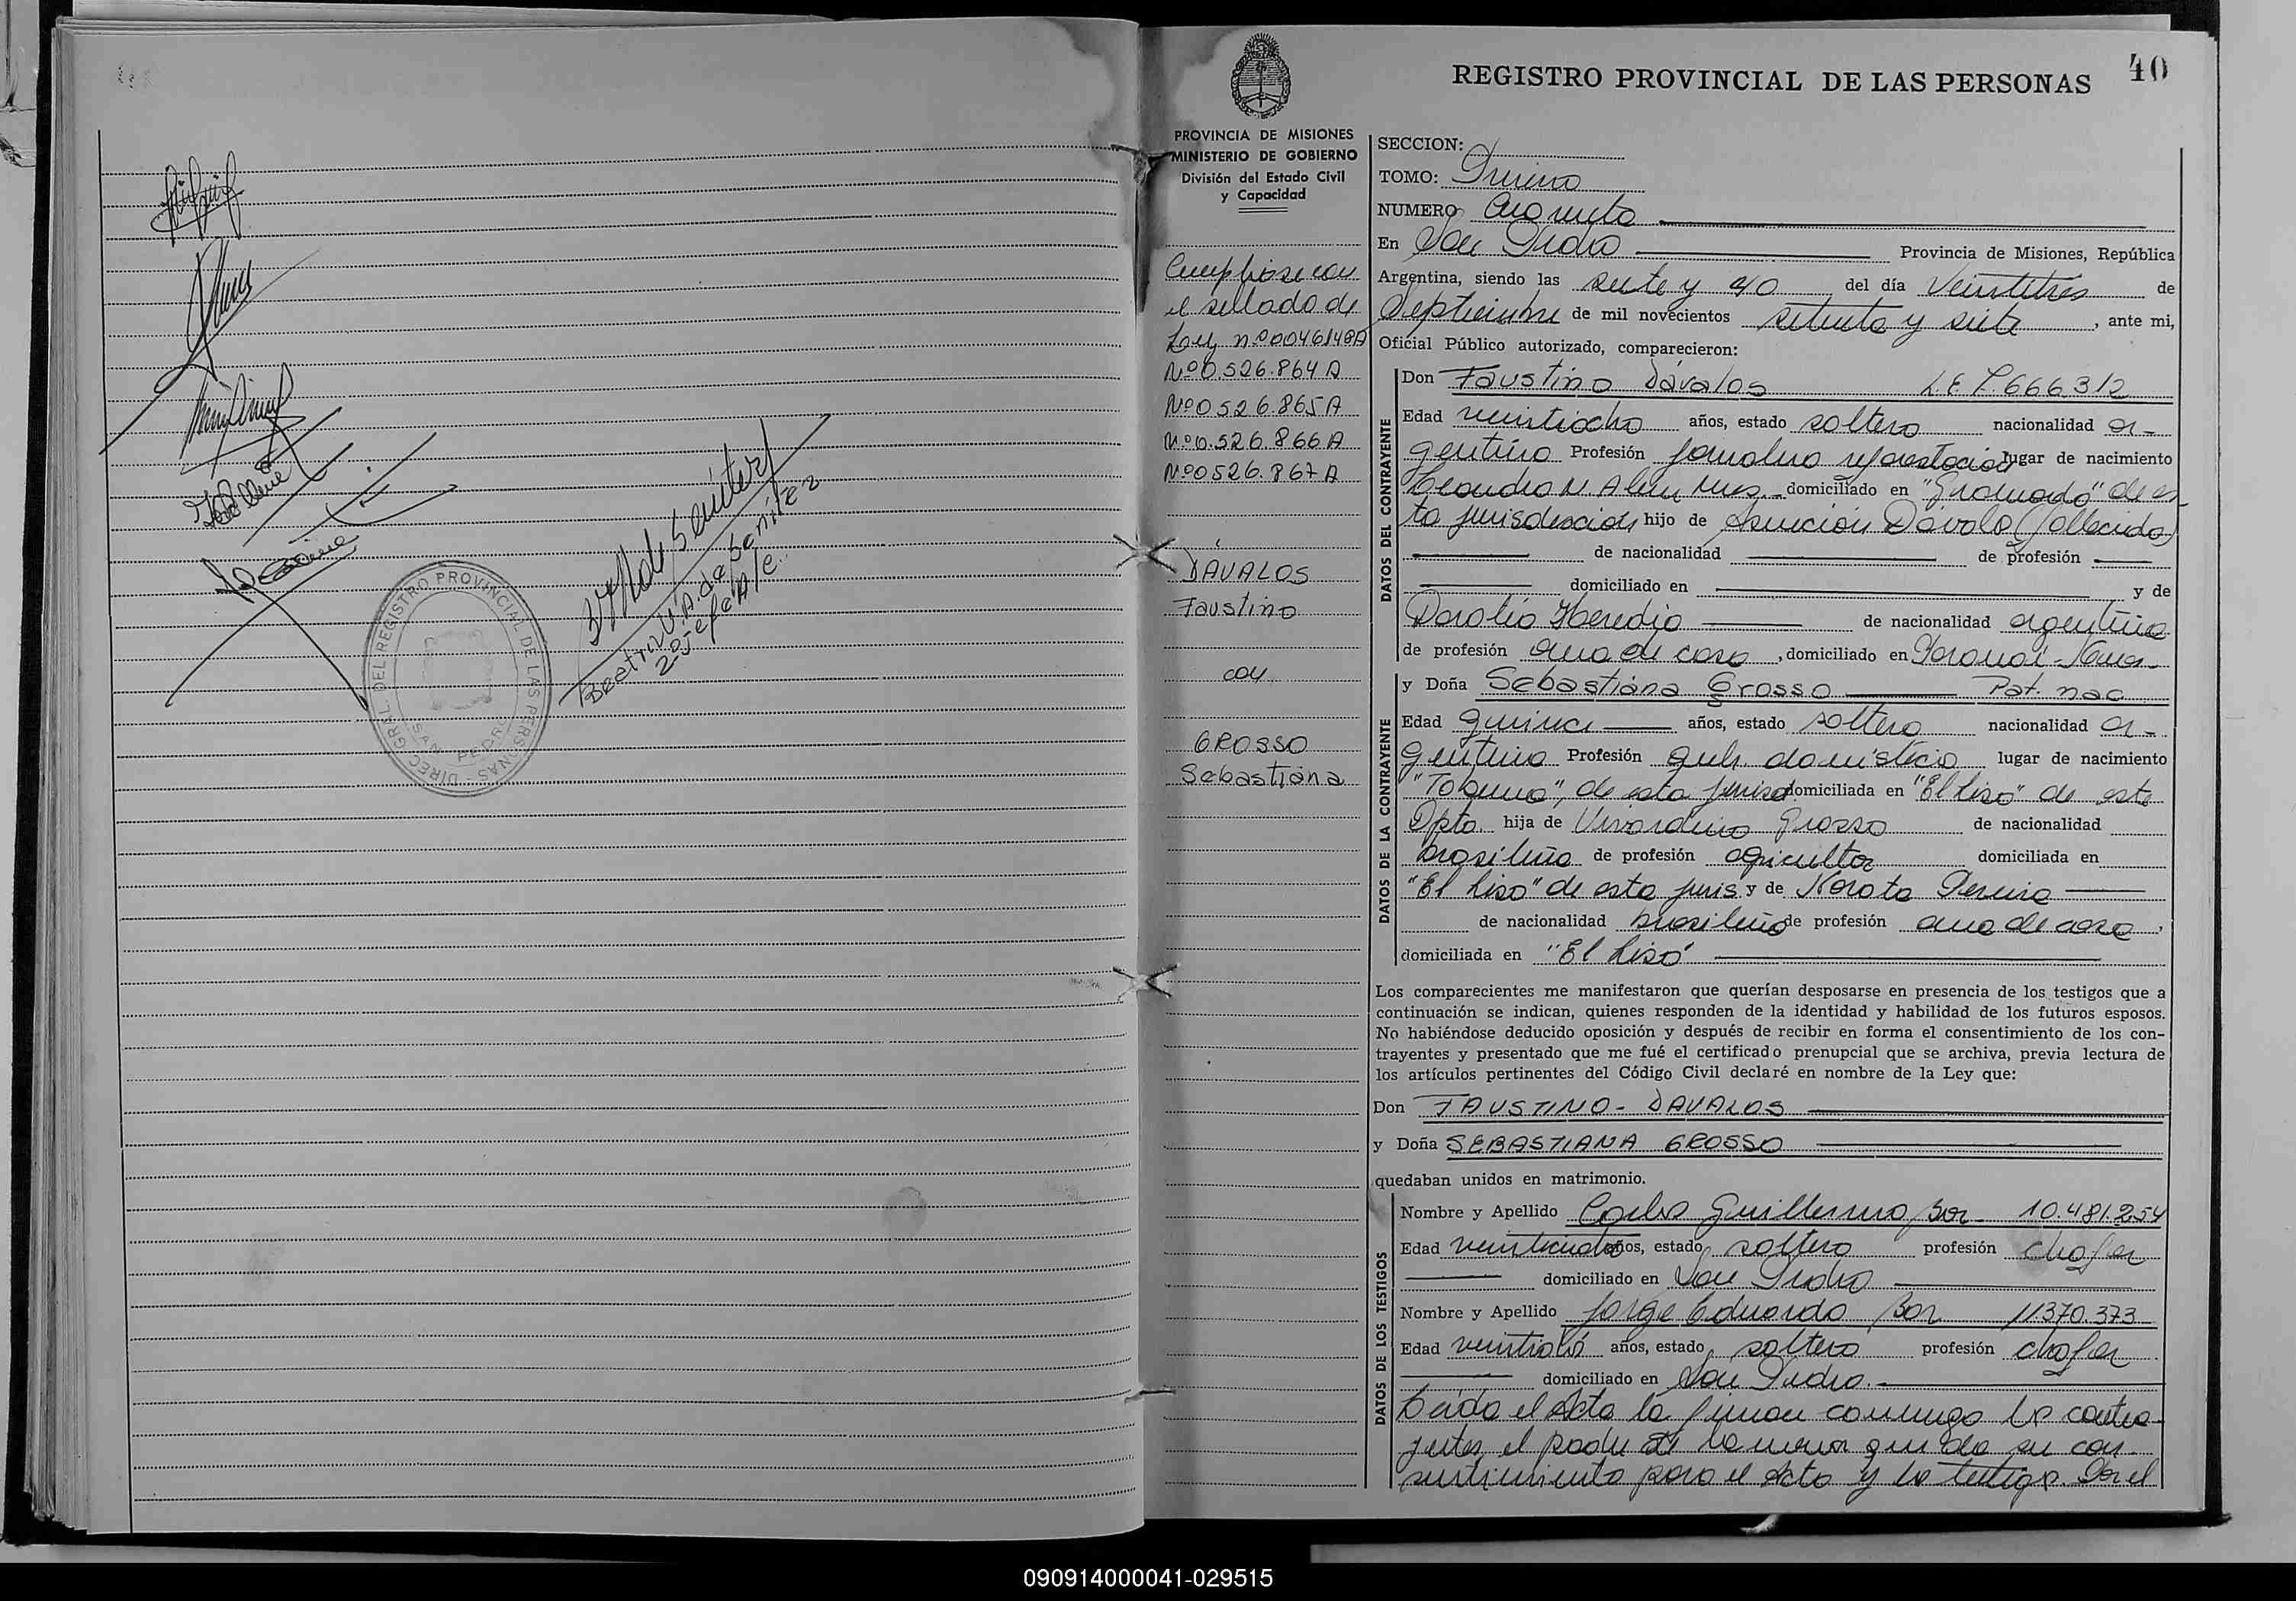 Beatriz V. A. de Benitez
2º Jefe A/C.
DIREC. GRAL. DEL REGISTRO PROVINCIAL DE LAS PERSONAS
SAN PEDRO
40
REGISTRO PROVINCIAL DE LAS PERSONAS
PROVINCIA DE MISIONES
MINISTERIO DE GOBIERNO
División del Estado Civil
y Capacidad
Cumplióse con
el sellado de
Ley nº 0046148A
Nº0.526.864 A
Nº0526.865A
Nº0.526.866A
Nº0526.867A
DÁVALOS
Faustino
con
GROSSO
Sebastiana
SECCION:
TOMO: Primero
NUMERO Cuarenta
En San Pedro Provincia de Misiones, República
Argentina, siendo las siete y 40 del día Veintitres de
Septiembre de mil novecientos setenta y siete, ante mi,
Oficial Público autorizado, comparecieron:
DATOS DEL CONTRAYENTE
Don Faustino Dávalos L.E. 7.666.312
Edad veintiocho años, estado soltero nacionalidad ar-
gentino Profesión jornalero lugar de nacimiento
Leandro N. Alem Mnes domiciliado en de es-
ta jurisdicción hijo de Asunción Dávalo (fallecido)
de nacionalidad de profesión
domiciliado en y de
Heredia de nacionalidad argentina
de profesión ama de casa, domiciliado en
DATOS DE LA CONTRAYENTE
y Doña Sebastiana Grosso Pat. nac
Edad quince años, estado soltera nacionalidad ar-
gentina Profesión queh. domestico lugar de nacimiento
"Tobuna", de esta jurisd. domiciliada en "El Liso" de este
Dpto. hija de Grosso de nacionalidad
brasileña de profesión agricultor domiciliada en
"El Liso" de esta juris. y de Pereira
de nacionalidad brasileña de profesión ama de casa,
domiciliada en "El Liso"
Los comparecientes me manifestaron que querían desposarse en presencia de los testigos que a
continuación se indican, quienes responden de la identidad y habilidad de los futuros esposos.
No habiéndose deducido oposición y después de recibir en forma el consentimiento de los con-
trayentes y presentado que me fué el certificado prenupcial que se archiva, previa lectura de
los artículos pertinentes del Código Civil declaré en nombre de la Ley que:
Don FAUSTINO - DAVALOS
y Doña SEBASTIANA GROSSO
quedaban unidos en matrimonio.
DATOS DE LOS TESTIGOS
Nombre y Apellido Carlos Guillermo Bor 10.481.254
Edad años, estado soltero profesión chofer
domiciliado en San Pedro
Nombre y Apellido Jorge Eduardo Bor 11.370.373
Edad años, estado soltero profesión chofer
domiciliado en San Pedro.
Leida el Acta la firman conmigo los contra-
yentes, el padre de la menor que da su con-
sentimiento para el Acto y los testigos. Por el
090914000041-029515